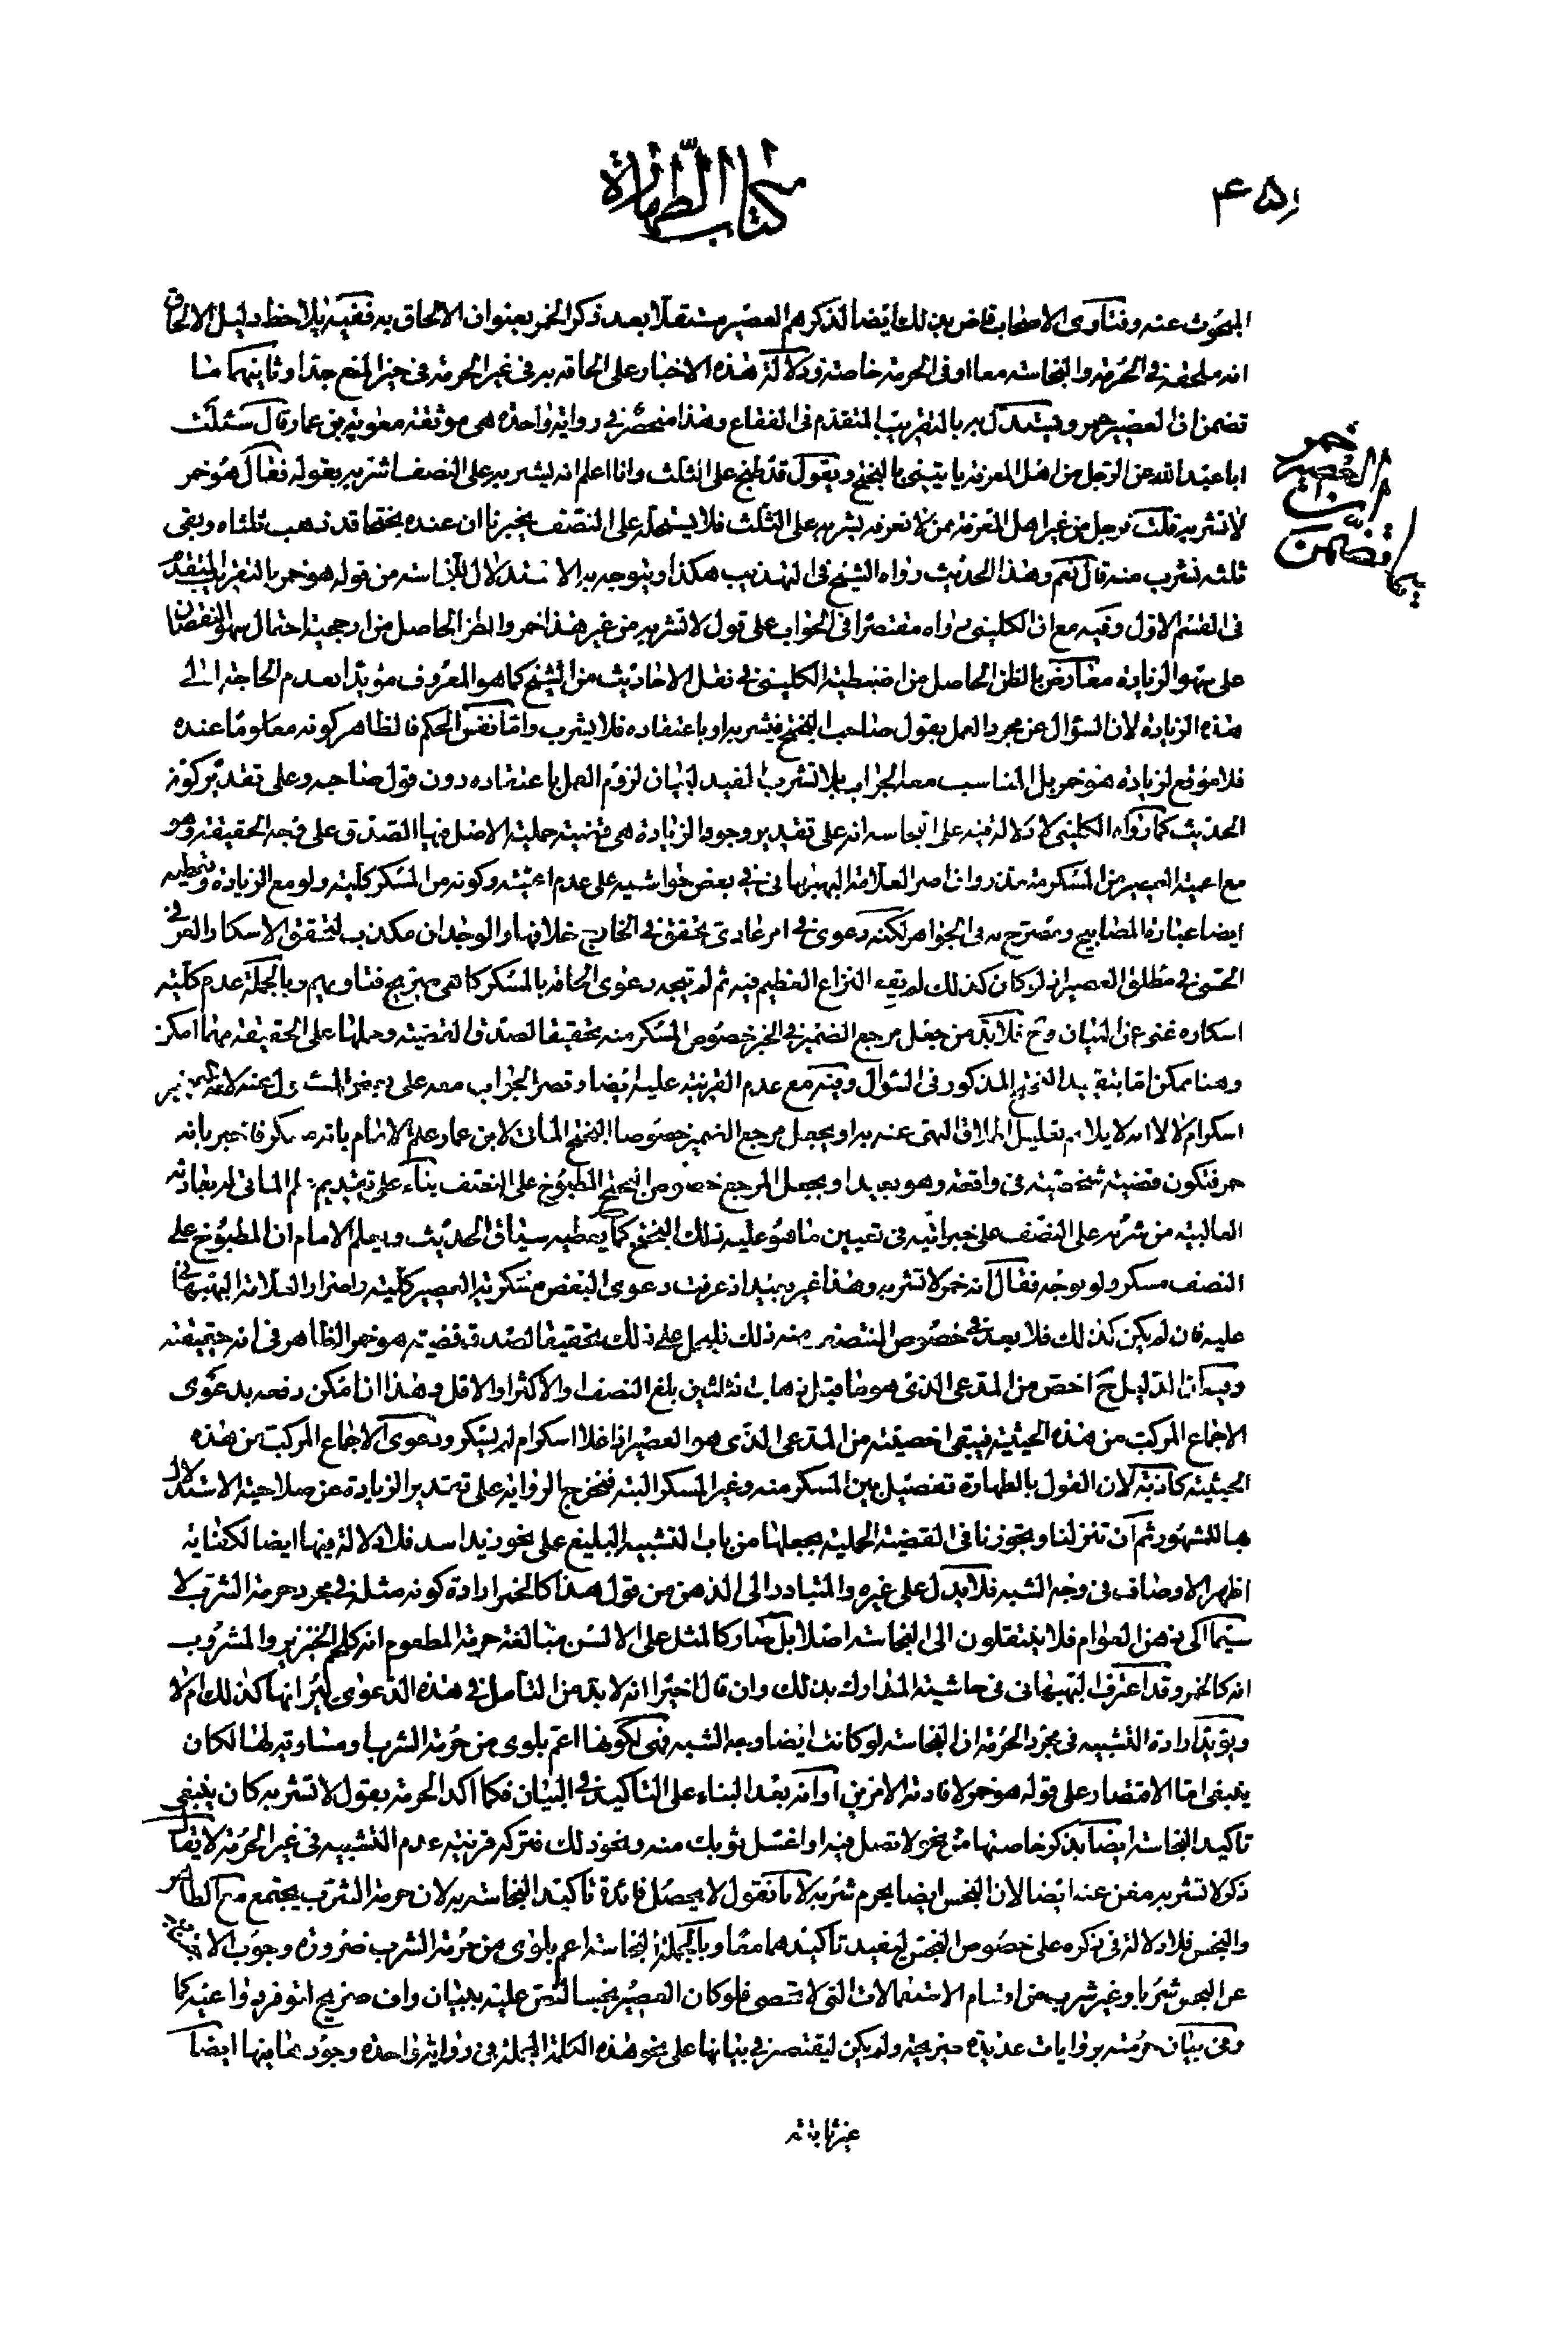 ۴۵۱
كتاب الطهارة
المبحوث عنه وفتاوى الاصحاب قاض بذلك ايضا لذكرهم العصير مستقلا بعد ذكر الخمر بعنوان الالحاق به ففيه يلاحظ دليل الالحاق
انه ملحقه في الحرمة والنجاسة معا او في الحرمة خاصة ودلالة هذه الاخبار على الحاقه به في غير الحرمة في حيز المنع جدا وثانيهما ما
تضمن ان العصير خمر ويستدل به بالتقريب المتقدم في الفقاع وهذا منحصر في رواية واحدة هي موثقة معوية بن عمار قال سئلت
ابا عبد الله عن الرجل من اهل المعرفة ياتيني بالبختج ويقول قد طبخ على الثلث وانا اعلم انه يشربه على النصف اشربه بقوله فقال هو خمر
لا تشربه قلت فرجل من غير اهل المعرفة ممن لا نعرفه يشربه على الثلث فلا يستحله على النصف يخبرنا ان عنده بختجا قد ذهب ثلثاه وبقى
ثلثه نشرب منه قال نعم وهذا الحديث رواه الشيخ في التهذيب هكذا ويتوجه به الاستدلال للنجاسة من قوله هو خمر بالتقريب المتقدم
في القسم الاول وفيه مع ان الكليني رواه مقتصرا في الجواب على قول لا تشربه من غير هذا خمر والظن الحاصل من ارجحية احتمال سهو النقصان
على سهو الزيادة معارض بالظن الحاصل من اضبطية الكليني في نقل الاحاديث من الشيخ كما هو المعروف مؤيدا بعدم الحاجة الى
هذه الزيادة لان السؤال عن مجرد العمل بقول صاحب البختج فيشربه او باعتقاده فلا يشرب واما نفس الحكم فالظاهر كونه معلوما عنده
فلا موقع لزيادة هو خمر بل المناسب معه الجواب بلا تشرب المفيد لبيان لزوم العمل باعتقاده دون قول صاحبه وعلى تقدير كونه
الحديث كما رواه الكليني لا دلالة فيه على النجاسة انه على تقدير وجود الزيادة هي قضية حملية الاصل فيها الصدق على وجه الحقيقة وهو
مع اعمية العصير من المسكر متعذر وان اصر العلامة البهبهاني في بعض حواشيه على عدم اعميته وكونه من المسكر كلية ولو مع الزيادة
ايضا عبارة المصابيح وصرح به في الجواهر لكنه دعوى في امر عادي يتحقق في الخارج خلافها والوجدان مكذب لتحقق الاسكار العرفي
الحسي في مطلق العصير اذ لو كان كذلك لم يقع النزاع العظيم فيه ثم لم يتجه دعوى الحاقه بالمسكر كما هي صريح فتاويهم وبالجملة عدم كلية
اسكاره غني عن البيان وح فلا بد من جعل مرجع الضمير في الخبر خصوص المسكر منه تحقيقا لصدق القضية وحملها على الحقيقة مهما امكن
وهنا ممكن اما بتقييد البختج المذكور في السؤال وفيه مع عدم القرينة عليه ايضا وقصر الجواب معه على بعض المسئول عنه
اسكر ام لا الا انه لا يلائم تعليل اطلاق النهى عنه به او بجعل مرجع الضمير خصوص البختج الماتى لابن عمار وعلم الامام بانه مسكر فاخبر بانه
خمر فتكون قضية شخصية في واقعة وهو بعيد او بجعل المرجع خصوص البختج المطبوخ على النصف بناء على تقديم
الغالبية من شربه على النصف على خبرائيه في تعيين ما هو عليه ذلك البختج كما يعطيه سياق الحديث ويعلم الامام ان المطبوخ على
النصف مسكر ولو بوجه فقال انه خمر لا تشربه وهذا غير بعيد اذ عرفت دعوى البعض مسكرية العصير كلية واصرار العلامة البهبهاني
عليه فان لم يكن كذلك فلا بعد في خصوص المنتصف منه ذلك فليحمل على ذلك تحقيقا لصدق قضية هو خمر الظاهر في انه حقيقته
وفيه ان الدليل ح اخص من المدعى الذي هو ما قبل ذهاب الثلثين بلغ النصف او الاكثر او الاقل وهذا ان امكن دفعه بدعوى
الاجماع المركب من هذه الحيثية فيبقى اخصيته من المدعى الذي هو العصير اذا غلا اسكر ام لم يسكر ودعوى الاجماع المركب من هذه
الحيثية كاذبة لان القول بالطهارة تفصيل بين المسكر منه وغير المسكر البتة فتخرج الرواية على تقدير الزيادة عن صلاحية الاستدلال
بها للمشهور ثم ان تنزلنا وتجوزنا في القضية الحملية بجعلها من باب التشبيه البليغ على نحو زيد اسد فلا دلالة فيها ايضا لكفاية
اظهر الاوصاف في وجه الشبه فلا يدل على غيره والمتبادر الى الذهن من قول هذا كالخمر ارادة كونه مثله في مجرد حرمة الشرب لا
سيما الى ذهن العوام فلا ينتقلون الى النجاسة اصلا بل صار كالمثل على الالسن مبالغة حرمة المطعوم انه كلحم الخنزير والمشروب
انه كالخمر وقد اعترف البهبهاني في حاشية المدارك بذلك وان قال اخيرا انه لا بد من التأمل في هذه الدعوى ليرى انها كذلك ام لا
ويؤيد ارادة التشبيه في مجرد الحرمة ان النجاسة لو كانت ايضا وجه الشبه فهى لكونها اعم بلوى من حرمة الشرب او مساوته لها لكان
ينبغى اما الاقتصار على قوله هو خمر لافادة الامرين او انه بعد البناء على التاكيد في البيان فكما اكد الحرمة بقول لا تشربه كان ينبغى
تاكيد النجاسة ايضا بذكر خاصتها من نحو لا تصل فيه او اغسل ثوبك منه ونحو ذلك فتركه قرينة عدم التشبيه في غير الحرمة لا يقال
ذكر لا تشربه مغن عنه ايضا لان النجس ايضا يحرم شربه لانا نقول لا يحصل فائدة تاكيد النجاسة به لان حرمة الشرب يجتمع مع الطاهر
والنجس فلا دلالة في ذكره على خصوص النجس ليفيد تاكيدهما معا وبالجملة النجاسة اعم بلوى من حرمة الشرب ضرورة وجوب الاجتناب
عن النجس شربا وغير شرب من اقسام الاستعمالات التي لا تحصى فلو كان العصير نجسا لنص عليه ببيان واف صريح لتوفر دواعيه كما
وفى بيان حرمته بروايات عديدة صريحة ولم يكن ليقتصر في بيانها على نحو هذه الكلمة المجملة في رواية واحدة وجودها فيها ايضا
غير ثابتة
خمر
العصير
ان
تضمن